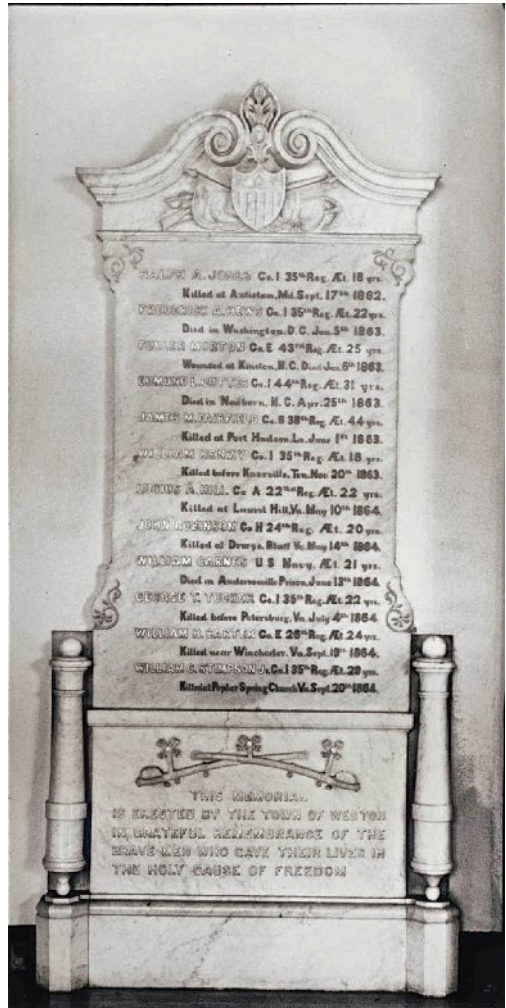 RALPH A. JONES Co. I 35th Reg. Æt. 18 yrs.
Killed at Antietam, Md. Sept. 17th 1862.
FREDERICK A. HEWS Co. I 35th Reg. Æt. 22 yrs.
Died in Washington, D.C. Jan. 5th 1863.
FULLER MORTON Co. E 43rd Reg. Æt. 25 yrs.
Wounded at Kinston, N.C. Died Jan. 6th 1863.
EDMUND L. CUTTER Co. I 44th Reg. Æt. 31 yrs.
Died in Newbern, N.C. Apr. 25th 1863.
JAMES M. FAIRFIELD Co. B 38th Reg. Æt. 44 yrs.
Killed at Port Hudson, La. June 1st 1863.
WILLIAM HENRY Co. I 35th Reg. Æt. 18 yrs.
Killed before Knoxville, Ten. Nov. 20th 1863.
LUCIUS A. HILL Co A 22nd Reg. Æt. 22 yrs.
Killed at Laurel Hill, Va. May 10th 1864.
JOHN ROBINSON Co H 24th Reg. Æt. 20 yrs.
Killed at Drurys Bluff Va. May 14th 1864.
WILLIAM CARNES U S Navy, Æt. 21 yrs.
Died in Andersonville Prison, June 13th 1864.
GEORGE T. TUCKER Co. I 35th Reg. Æt. 22 yrs.
Killed before Petersburg, Va. July 4th 1864.
WILLIAM H. CARTER Co. E 26th Reg. Æt. 24 yrs.
Killed near Winchester, Va. Sept. 19th 1864.
WILLIAM C. STIMPSON Jr. Co. I 35th Reg. Æt. 29 yrs.
Killed at Poplar Spring Church Va. Sept. 20th 1864.
THIS MEMORIAL
IS ERECTED BY THE TOWN OF WESTON
IN GRATEFUL REMEMBRANCE OF THE
BRAVE MEN WHO GAVE THEIR LIVES IN
THE HOLY CAUSE OF FREEDOM